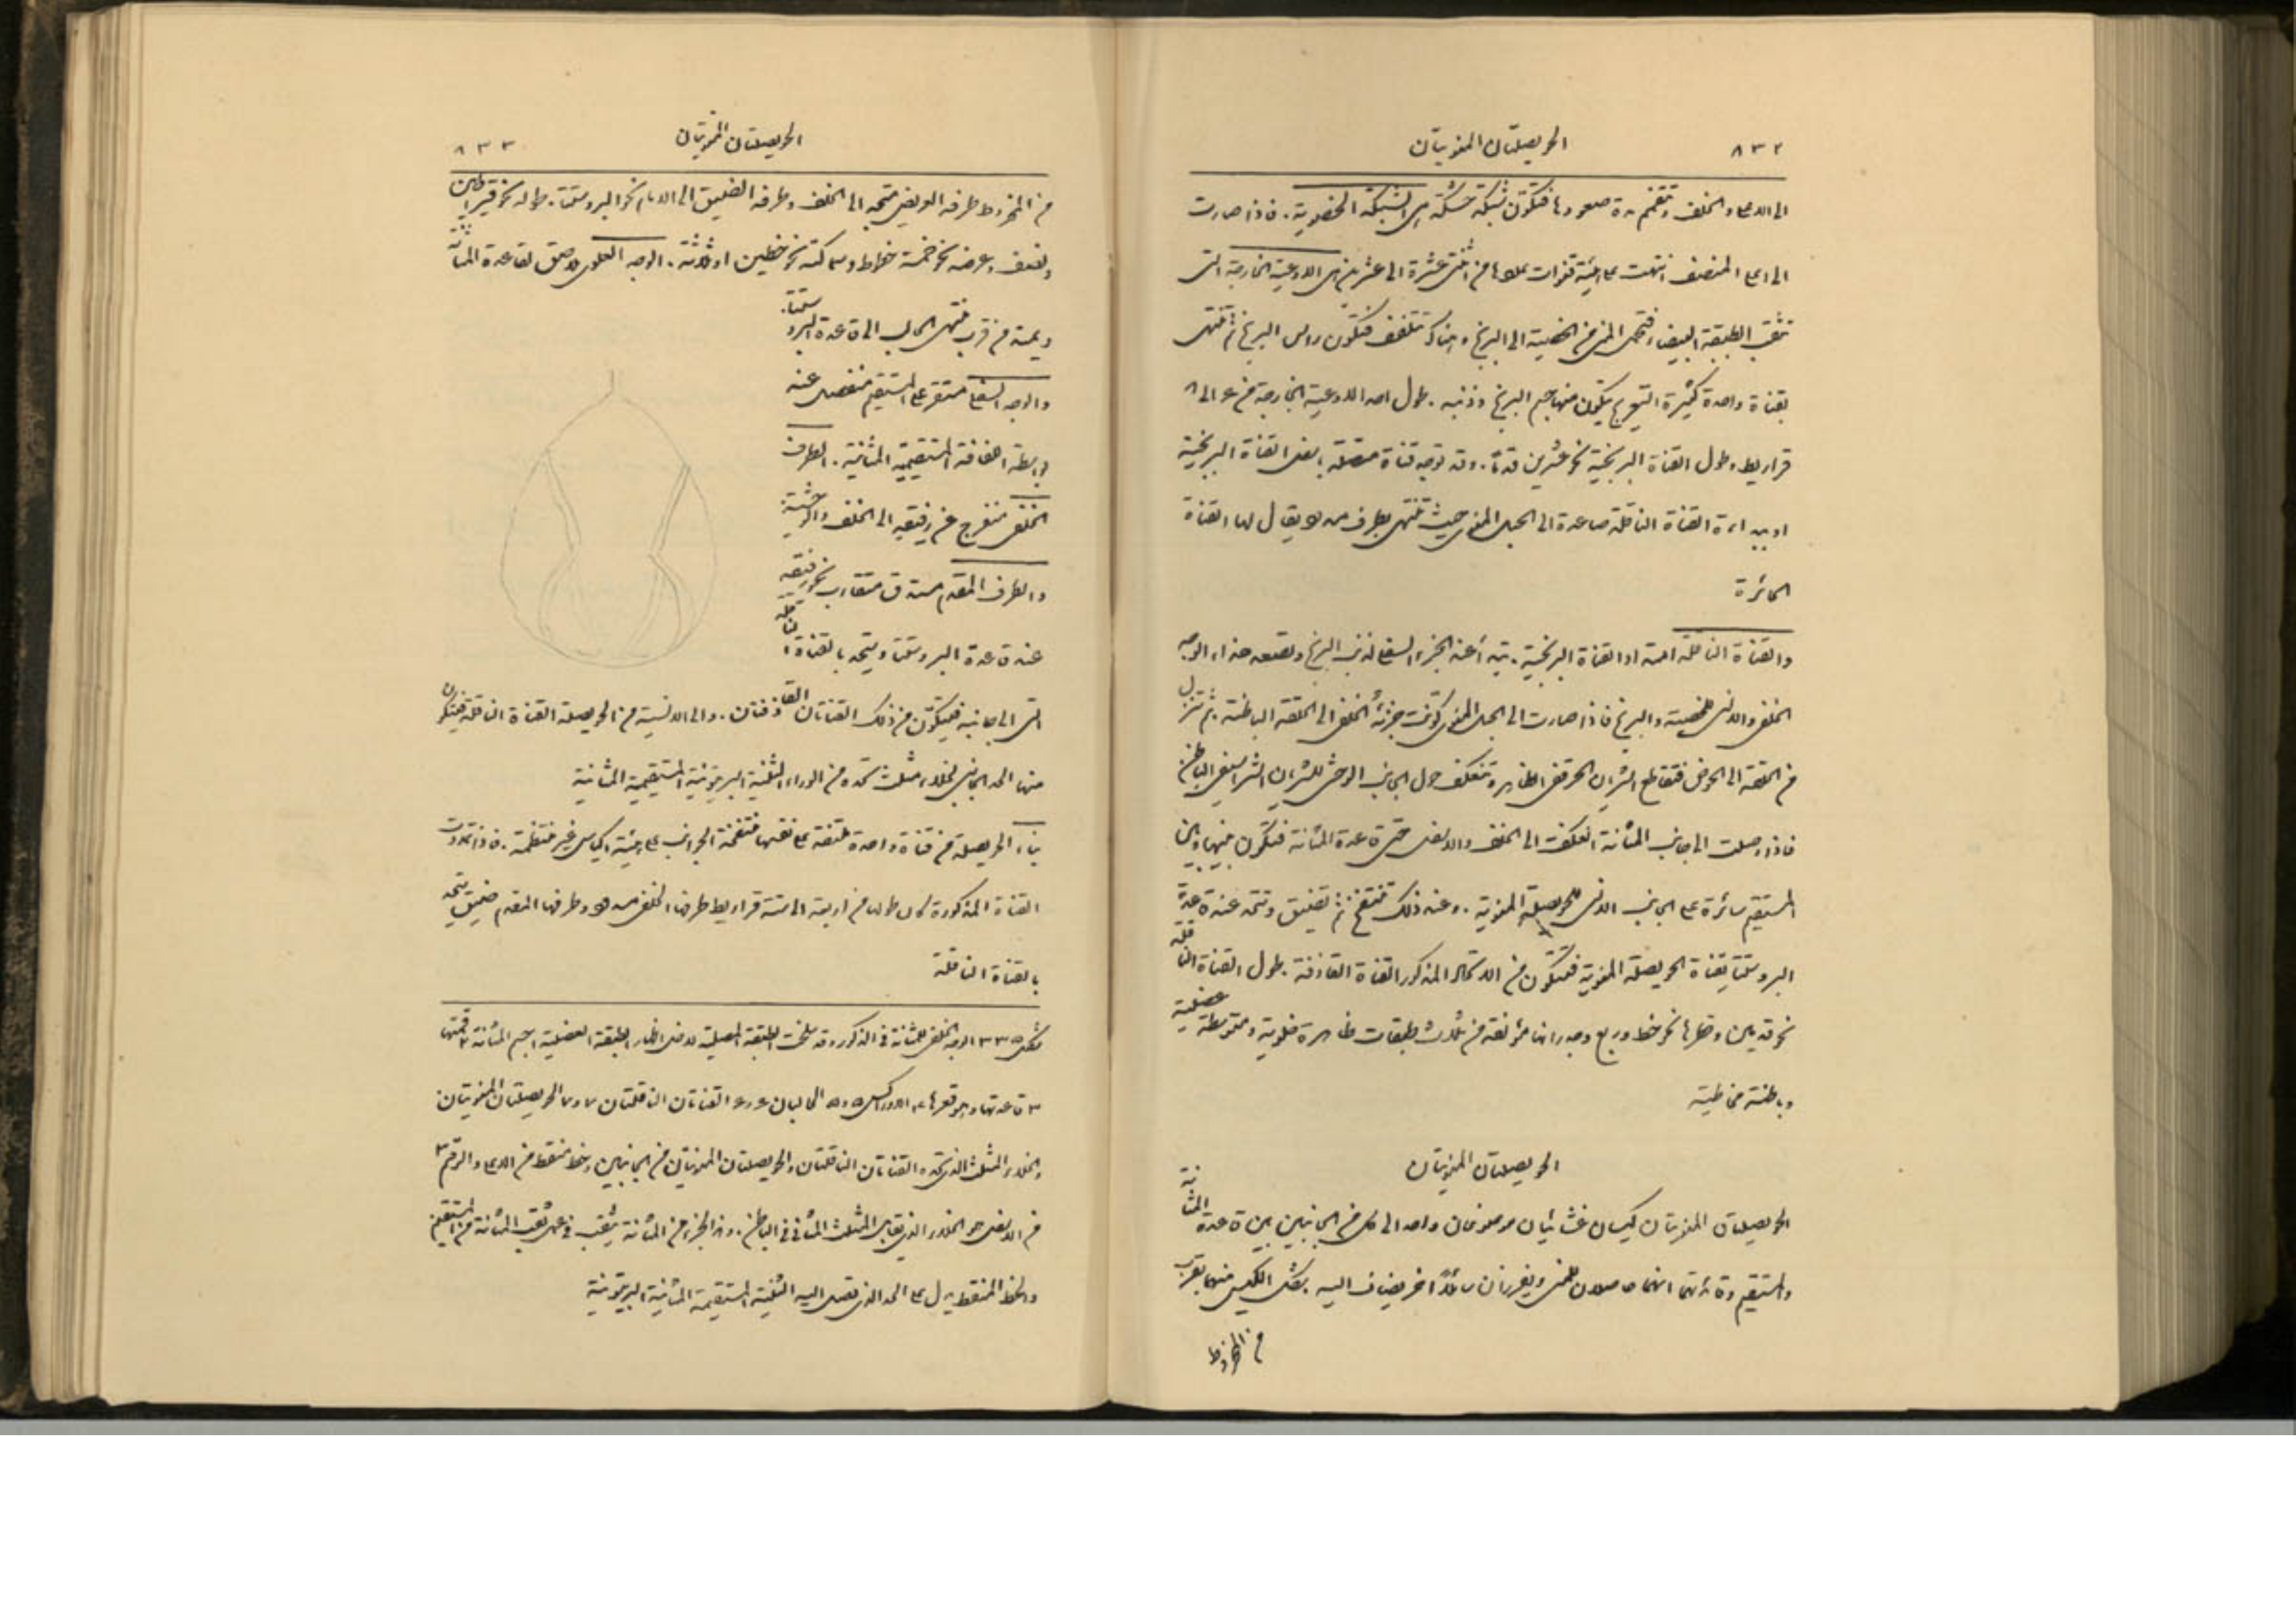 ٨٣٢ الحويصلتان المنويتان
الى الاعلى والخلف وتنضم مدة صعودها فتتكون شبكة هي الشبكة الخصوية. فاذا صارت
الى اعلى المنصف انتهت على هيئة قنوات عددها من اثنتي عشرة الى عشرين هي الاوعية الخارجة التي
تثقب الطبقة البيضاء فتحمل المني من الخصية الى البربخ وهناك تتلفف فتكون راس البربخ ثم تنتهي
بقناة واحدة كثيرة التعريج يتكون منها جسم البربخ وذنبه. طول احد الاوعية الخارجة من ٤ الى ٨
قراريط وطول القناة البربخية نحو عشرين قدمًا. وقد توجد قناة متصلة باسفل القناة البربخية
او ببداءة القناة الناقلة صاعدة الى الحبل المنوي حيث تنتهي بطرف مسدود يقال لها القناة
الحائرة
والقناة الناقلة امتداد القناة البربخية. تبتدأ عند الجزء السفلي لذنب البربخ وتصعد حذاء الوجه
الخلفي والانسي للخصية والبربخ فاذا صارت الى الحبل المنوي كونت جزئه الخلفي الى الحلقة الباطنة. ثم تنزل
من الحلقة الى الحوض فتقاطع الشريان الحرقفي الظاهر وتنعكف حول الجانب الوحشي للشريان الشراسيفي الباطن
فاذا وصلت الى جانب المثانة انعكفت الى الخلف والاسفل حتى قاعدة المثانة فتكون بينها وبين
المستقيم سائرة على الجانب الانسي للحويصلة المنوية. وعند ذلك تنتفخ ثم تضيق وتتحد عند قاعدة
البروستتا بقناة الحويصلة المنوية فتتكون من الاتحاد المذكور القناة القاذفة. طول القناة الناقلة
نحو قدمين وقطرها نحو خط وربع وجدرانها مؤلفة من ثلاث طبقات ظاهرة خلوية ومتوسطة عضلية
وباطنة مخاطية
الحويصلتان المنويتان
الحويصلتان المنويتان كيسان غشائيان موضوعان واحد الى كل من الجانبين بين قاعدة المثانة
والمستقيم وفائدتهما انهما حاصلان للمني ويفرزان سائلاً اخر يضاف اليه. شكل الكيس منهما يقرب
من المخروط
الحويصلتان المنويتان ٨٣٣
من المخروط طرفه العريض متجه الى الخلف وطرفه الضيق الى الامام نحو البروستتا. طوله نحو قيراطين
ونصف وعرضه نحو خمسة خطوط وسماكته نحو خطين او ثلاثة. الوجه العلوي ملاصق لقاعدة المثانة
ويمتد من قرب منتهى الحالب الى قاعدة البروستتا.
والوجه السفلي مستقر على المستقيم منفصل عنه
بواسطة اللفافة المستقيمية المثانية. الطرف
الخلفي منفرج عن رفيقه الى الخلف والوحشية.
والطرف المقدم مستدق متقارب نحو رفيقه
عند قاعدة البروستتا ويتحد بالقناة الناقلة
التي الى جانبه فيتكون من ذلك القناتان القاذفتان. والى الانسية من الحويصلة القناة الناقلة فيتكون
منها الحد الجانبي لخلاء مثلث تحده من الوراء الثنية البريتونية المستقيمية المثانية
بناء الحويصلة من قناة واحدة ملتفة على نفسها منتفخة الجوانب على هيئة اكياس غير منتظمة. فاذا تمددت
القناة المذكورة كان طولها من اربعة الى ستة قراريط طرفها الخلفي مسدود وطرفها المقدم ضيق يتحد
بالقناة الناقلة
شكل ٣٣٥ الوجه الخلفي للمثانة في الذكور وقد سلخت الطبقة المصلية لاجل اظهار الطبقة العضلية ١ جسم المثانة ٢ قمتها
٣ قاعدتها وموقعها ٤ الاوراكس ٥ و٥ الحالبان ٦ و٦ القناتان الناقلتان ٧ و٧ الحويصلتان المنويتان
والخلاء المثلث الذي تحده القناتان الناقلتان والحويصلتان المنويتان من الجانبين وخط منقط من الاعلى والرقم ٣
من الاسفل هو الخلاء الذي يقابل المثلث المثاني في الباطن. وهذا الجزء من المثانة يثقب في عمل ثقب المثانة من المستقيم
والخط المنقط يدل على الحد الذي تصل اليه الثنية المستقيمية المثانية البريتونية